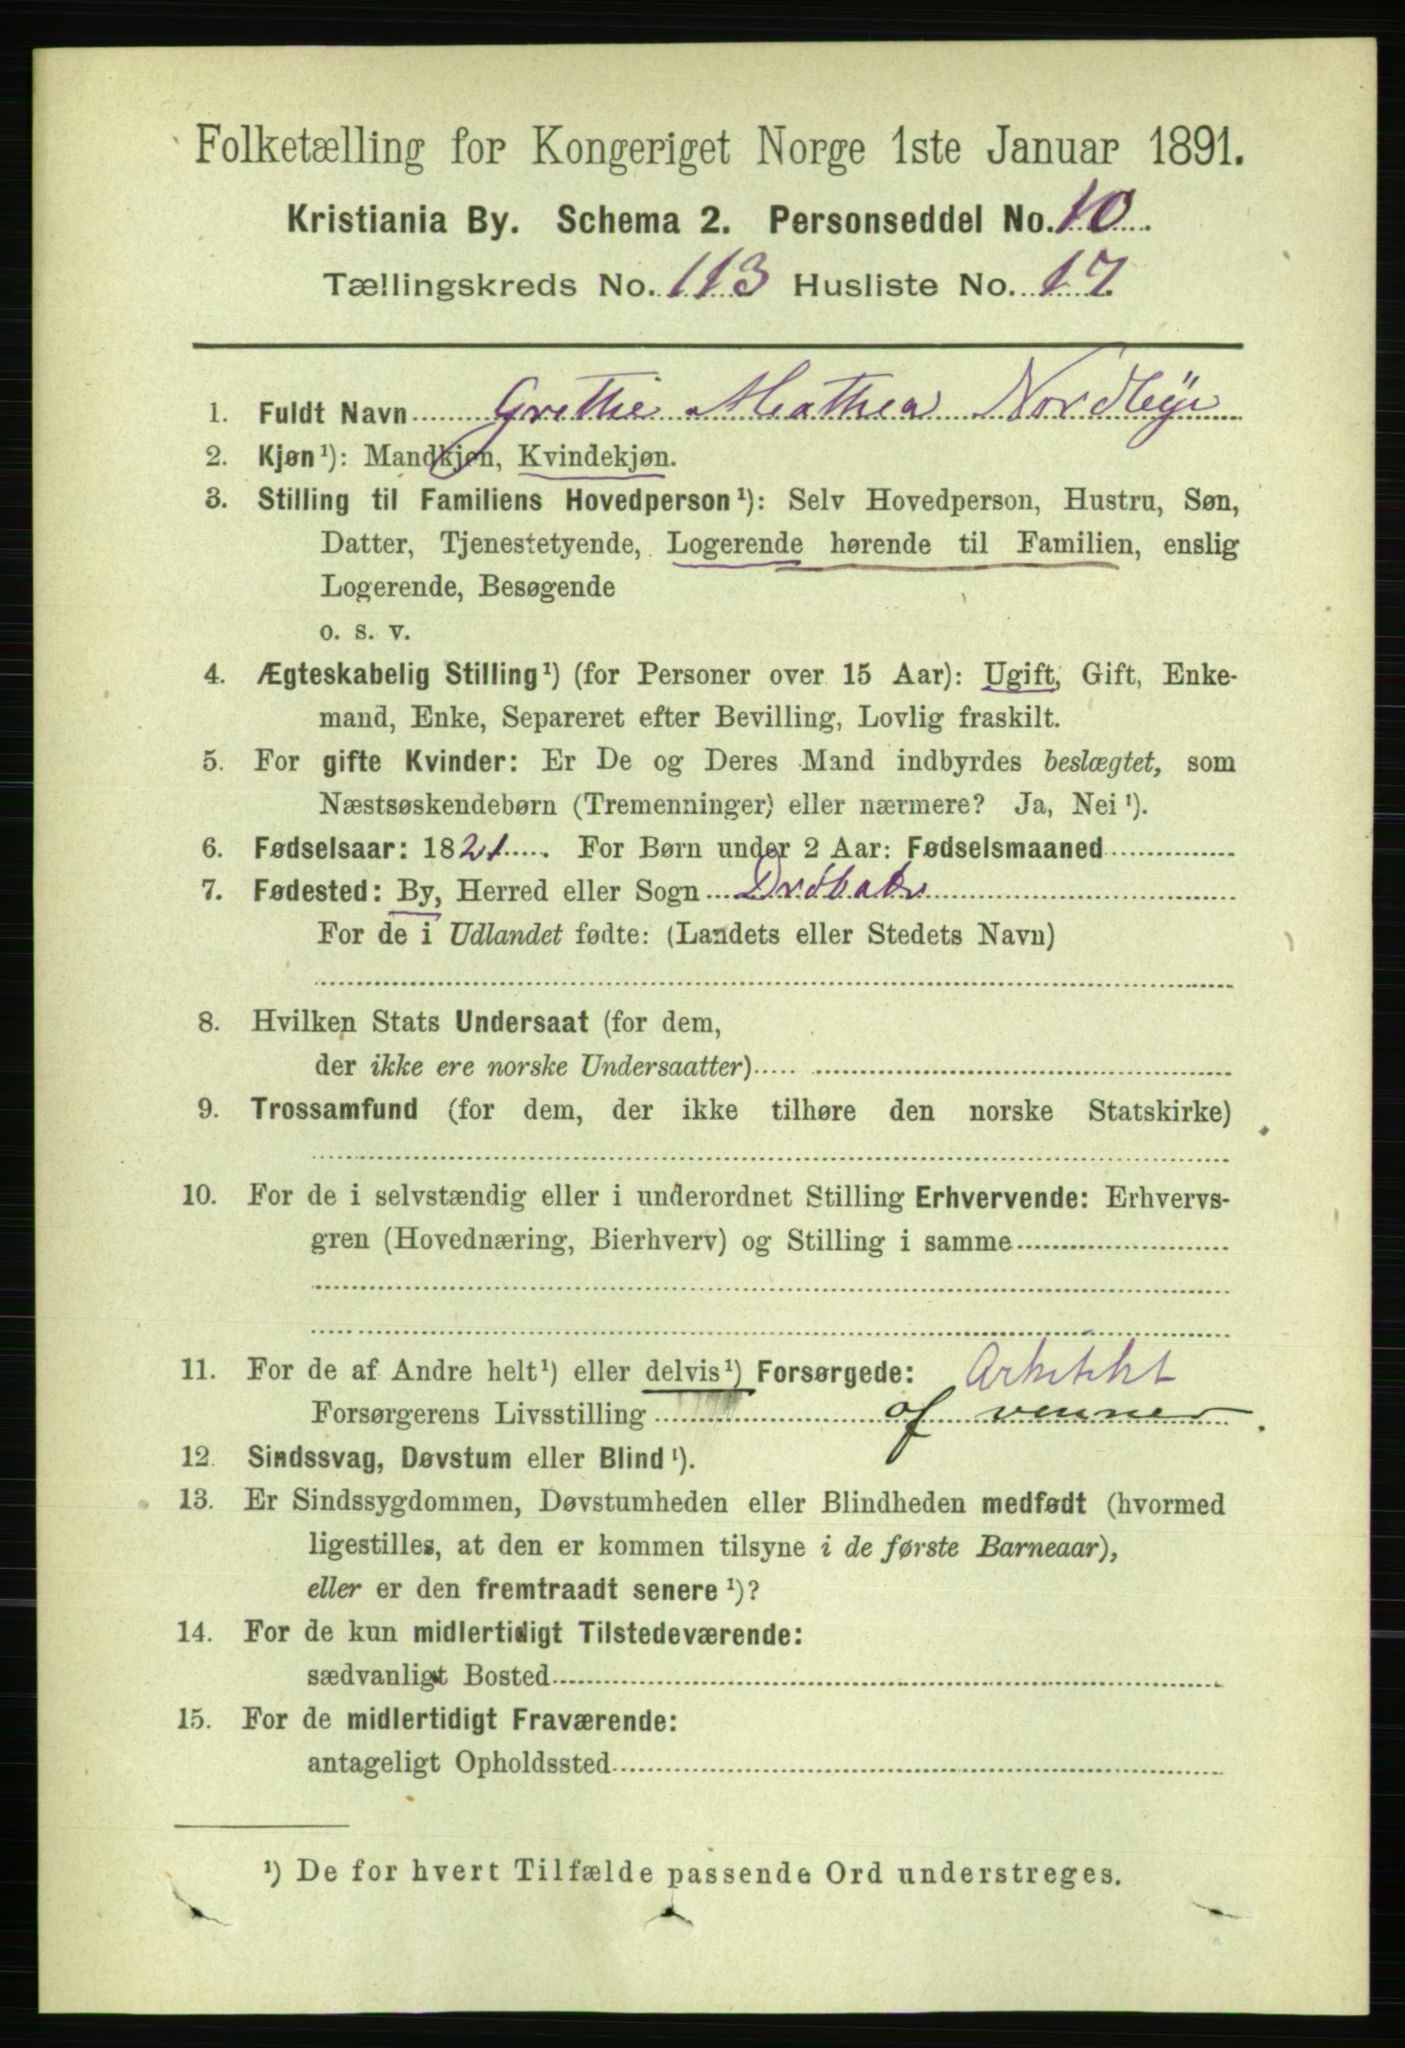 Folketælling for Kongeriget Norge 1ste Januar 1891.
Kristiania By. Schema 2. Personseddel No. 10
Tællingskreds No. 113 Husliste No. 17
1. Fuldt Navn Grethe Mathea Nordbye
2. Kjøn¹): Mandkjøn, Kvindekjøn.
3. Stilling til Familiens Hovedperson¹): Selv Hovedperson, Hustru, Søn,
Datter, Tjenestetyende, Logerende hørende til Familien, enslig
Logerende, Besøgende
o. s. v.
4. Ægteskabelig Stilling¹) (for Personer over 15 Aar): Ugift, Gift, Enke-
mand, Enke, Separeret efter Bevilling, Lovlig fraskilt.
5. For gifte Kvinder: Er De og Deres Mand indbyrdes beslægtet, som
Næstsøskendebørn (Tremenninger) eller nærmere? Ja, Nei¹).
6. Fødselsaar: 1821. For Børn under 2 Aar: Fødselsmaaned
7. Fødested: By, Herred eller Sogn Drøbak
For de i Udlandet fødte: (Landets eller Stedets Navn)
8. Hvilken Stats Undersaat (for dem,
der ikke ere norske Undersaatter)
9. Trossamfund (for dem, der ikke tilhøre den norske Statskirke)
10. For de i selvstændig eller i underordnet Stilling Erhvervende: Erhvervs-
gren (Hovednæring, Bierhverv) og Stilling i samme
11. For de af Andre helt¹) eller delvis¹) Forsørgede: Arkitekt
Forsørgerens Livsstilling af venner
12. Sindssvag, Døvstum eller Blind¹).
13. Er Sindssygdommen, Døvstumheden eller Blindheden medfødt (hvormed
ligestilles, at den er kommen tilsyne i de første Barneaar),
eller er den fremtraadt senere¹)?
14. For de kun midlertidigt Tilstedeværende:
sædvanligt Bosted
15. For de midlertidigt Fraværende:
antageligt Opholdssted
¹) De for hvert Tilfælde passende Ord understreges.